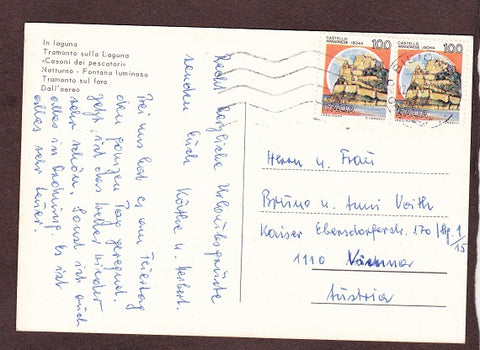 In laguna
Tramonto sulla Laguna
«Casoni dei pescatori»
Notturno - Fontana luminosa
Tramonto sul faro
Dall'aereo
CASTELLO
ARAGONESE - ISCHIA
100
CASTELLO
ARAGONESE - ISCHIA
100
ITALIA
ITALIA
Recht herzliche Urlaubsgrüsse
senden Euch Käthe u. Herbert.
Bei uns hat es am Feiertag
den ganzen Tag geregnet.
Jetzt ist das Wetter wieder
sehr schön. Sonst ist auch
alles in Ordnung. Es ist
alles sehr teuer.
Herrn u. Frau
Bruno u. Anni Voith
Kaiser Ebersdorferstr. 170/Stg. 1/15
1110 Vienna
Austria